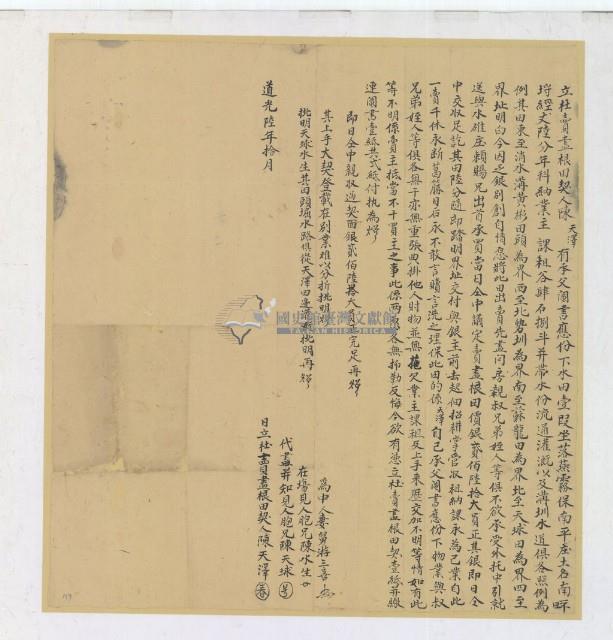 立杜賣盡根田契人陳天澤有承父鬮書應份下水田壹段坐落燕霧保南平庄土名南畔
埒經丈陸分年科納業主課租谷肆石捌斗并帶水份流通灌溉以及溝圳水道俱各照例為
例其田東至消水溝黃彬田頭為界西至北勢圳為界南至蘇龍田為界北至天球田為界四至
界址明白今因乏銀別創自情愿將此田出賣先盡問房親叔兄弟姪人等俱不欲承受外托中引就
送與水雉庄賴賜兄出首承買當日仝中議定賣盡根田價銀貳佰陸拾大員正其銀即日仝
中交收足訖其田陸分隨即踏明界址交付與銀主前去起佃招耕掌管收租納課永為己業自此
一賣千休永斷葛藤日后永不敢言贖言洗之理保此田的係天澤自己承父鬮書應份下物業與叔
兄弟姪人等俱各無干亦無重張典掛他人財物並無拖欠業主課租及上手來歷交加不明等情如有此
等不明係賣主抵當不干買主之事此係兩愿各無抑勒反悔今欲有憑立杜賣盡根田契壹紙并繳
連鬮書壹紙共弍紙付執為炤
即日仝中親收過契面銀貳佰陸拾大員完足再炤
其上手大契登載在別業難以分折批明
批明天球水生其田頭埔水路俱從天澤田邊批明再炤
為中人妻舅蔣三喜
在場見人胞兄陳水生
代書并知見人胞兄陳天球
道光陸年拾月 日立杜賣盡根田契人陳天澤
國史館臺灣文獻館
TAIWAN HISTORICA